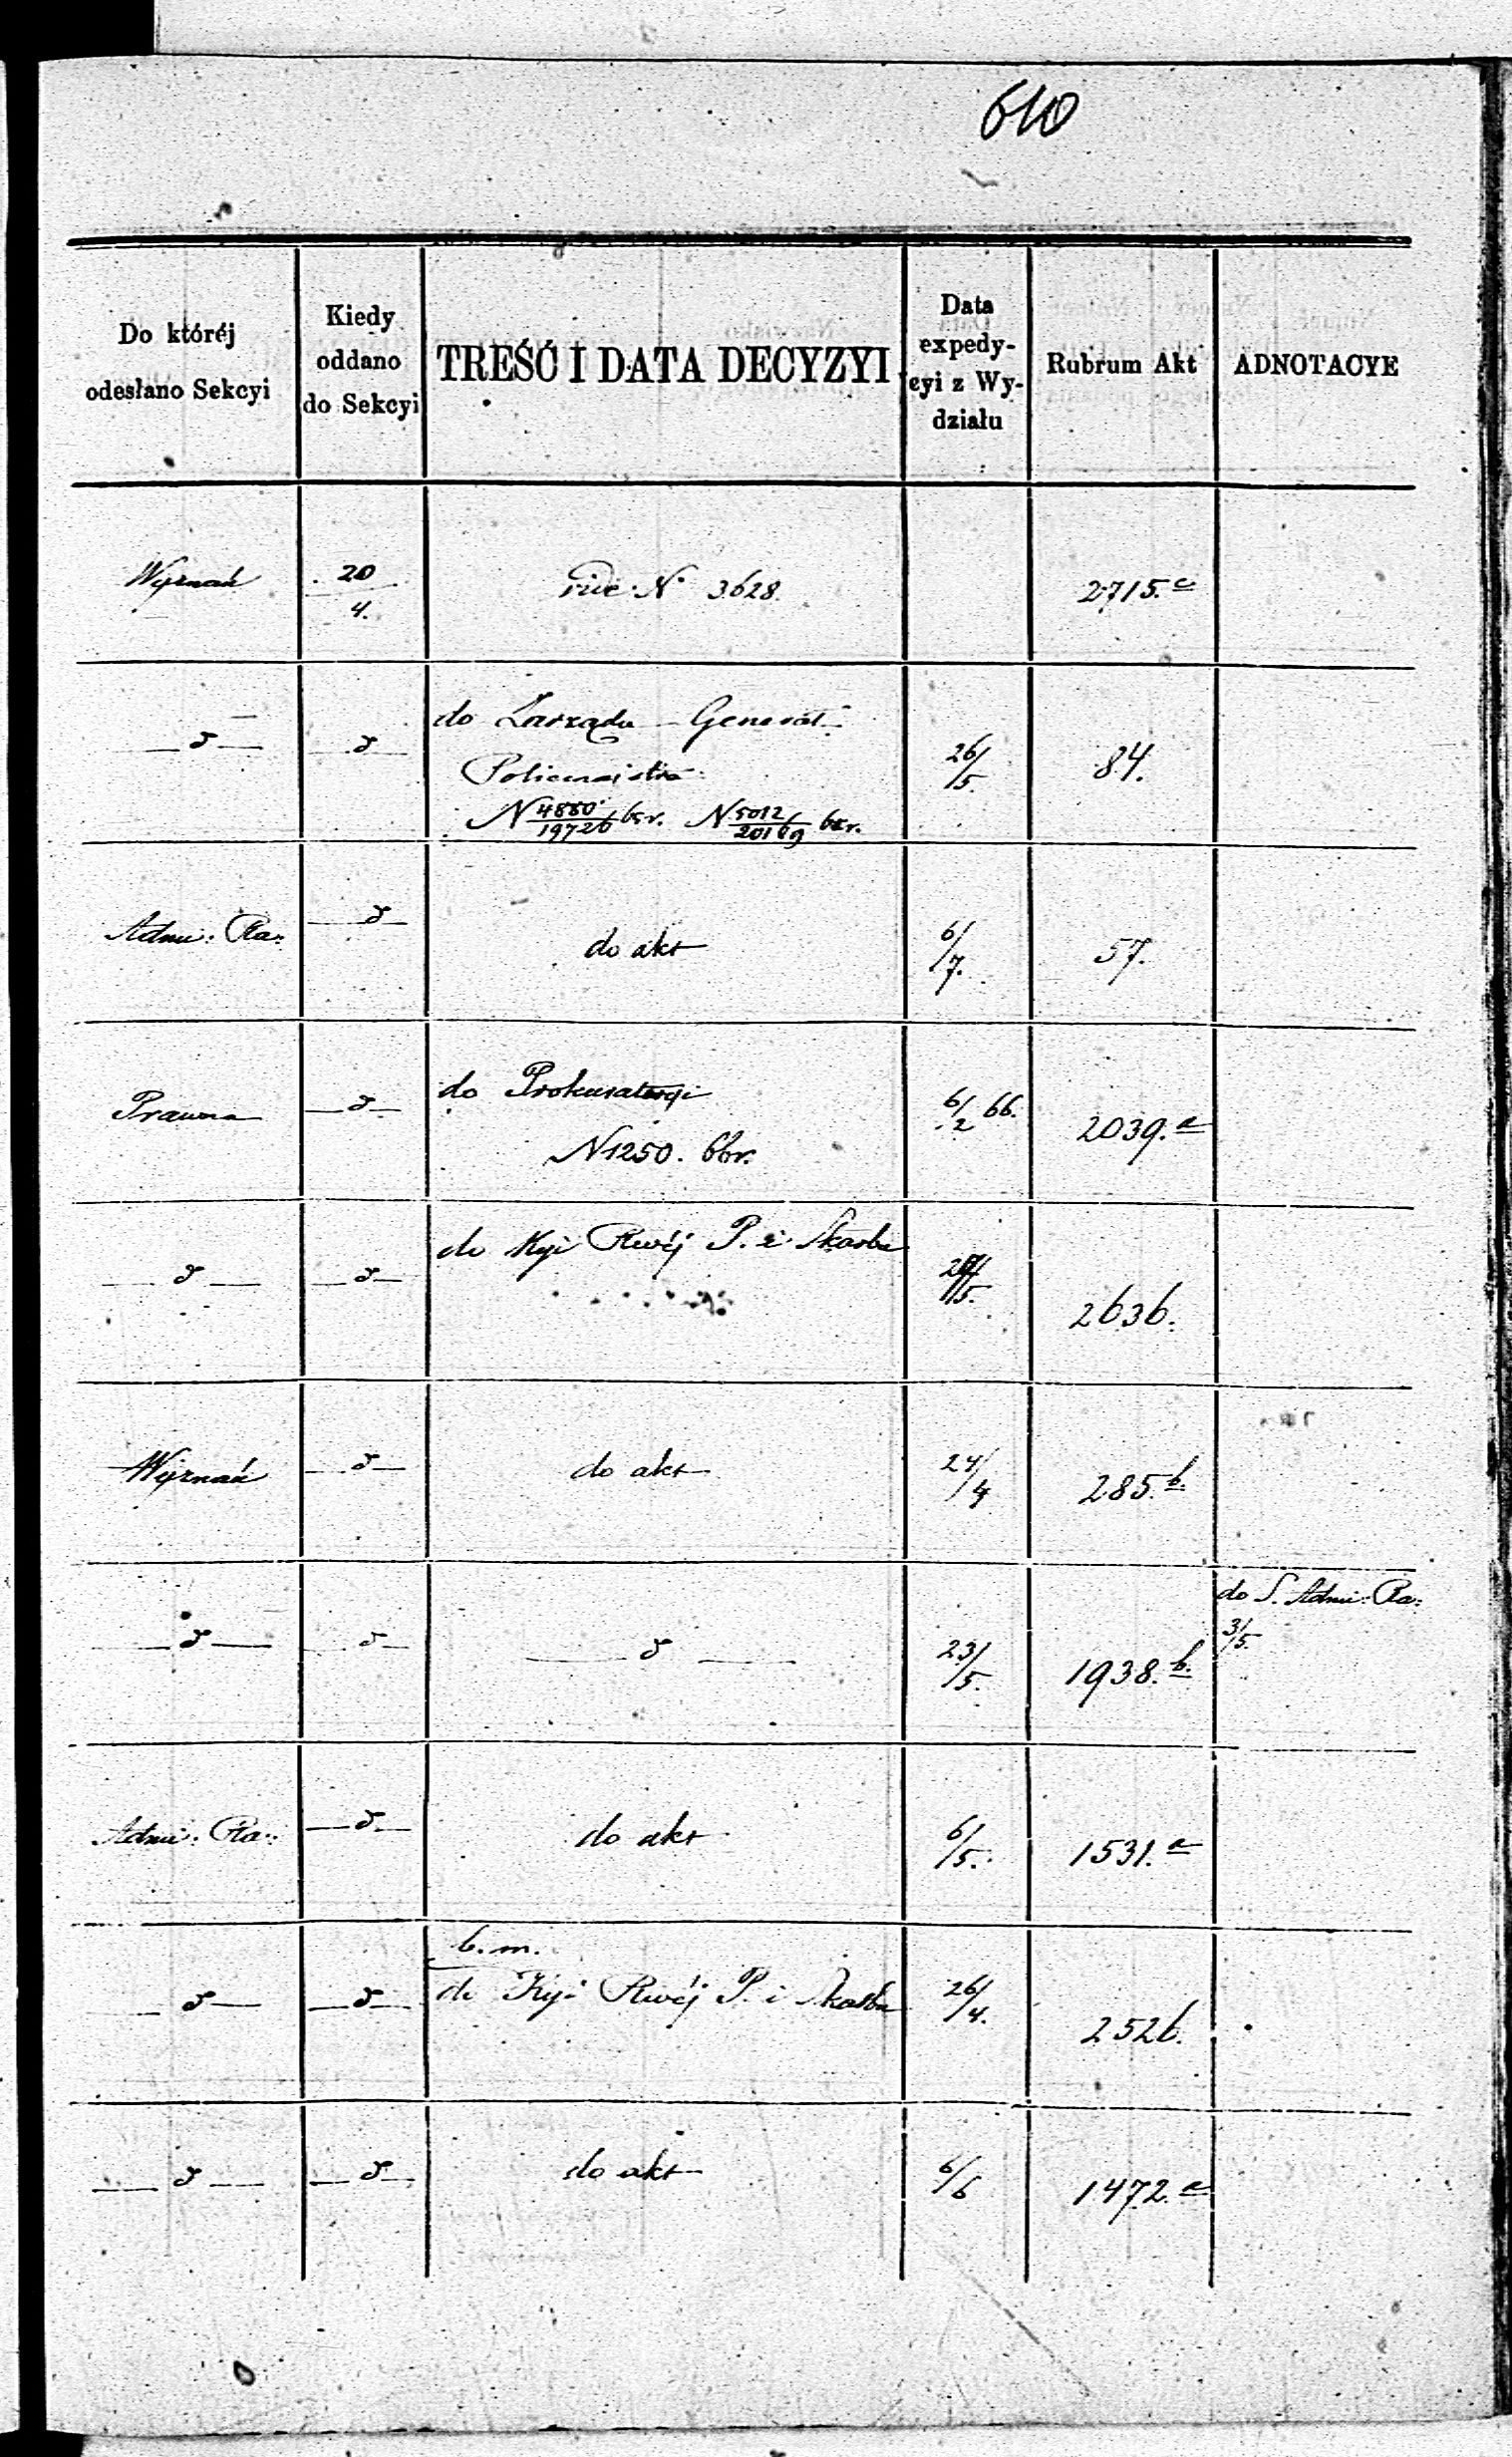 610
Do któréj
odesłano Sekcyi
Kiedy
oddano
do Sekcyi
TREŚĆ I DATA DECYZYI
Data
expedy-
cyi z Wy-
działu
Rubrum Akt
ADNOTACYE
Wyznań
20
4.
vide N° 3628.
2715.a
— d —
— d —
do Zarządu Generał
Policmajstra
N 4880/19726 65r. N 5012/20169 65r.
26/5.
84.
Adm: Ra:
— d —
do akt
6/7.
57.
Prawna
— d —
do Prokuratoryi
N 1250. 66r.
6/2 66.
2039.a
— d —
— d —
do Kyi Rwéj P. i Skarbu
/5.
2636.
Wyznań
— d —
do akt
24/4
285.b
— d —
— d —
— d —
23/5.
1938.b
do S. Adm: Ra:
3/5.
Adm: Ra:
— d —
do akt
6/5.
1531.a
— d —
— d —
b. m.
do Kyi Rwéj P. i Skarbu
26/4.
2526.
— d —
— d —
do akt
6/6
1472.a